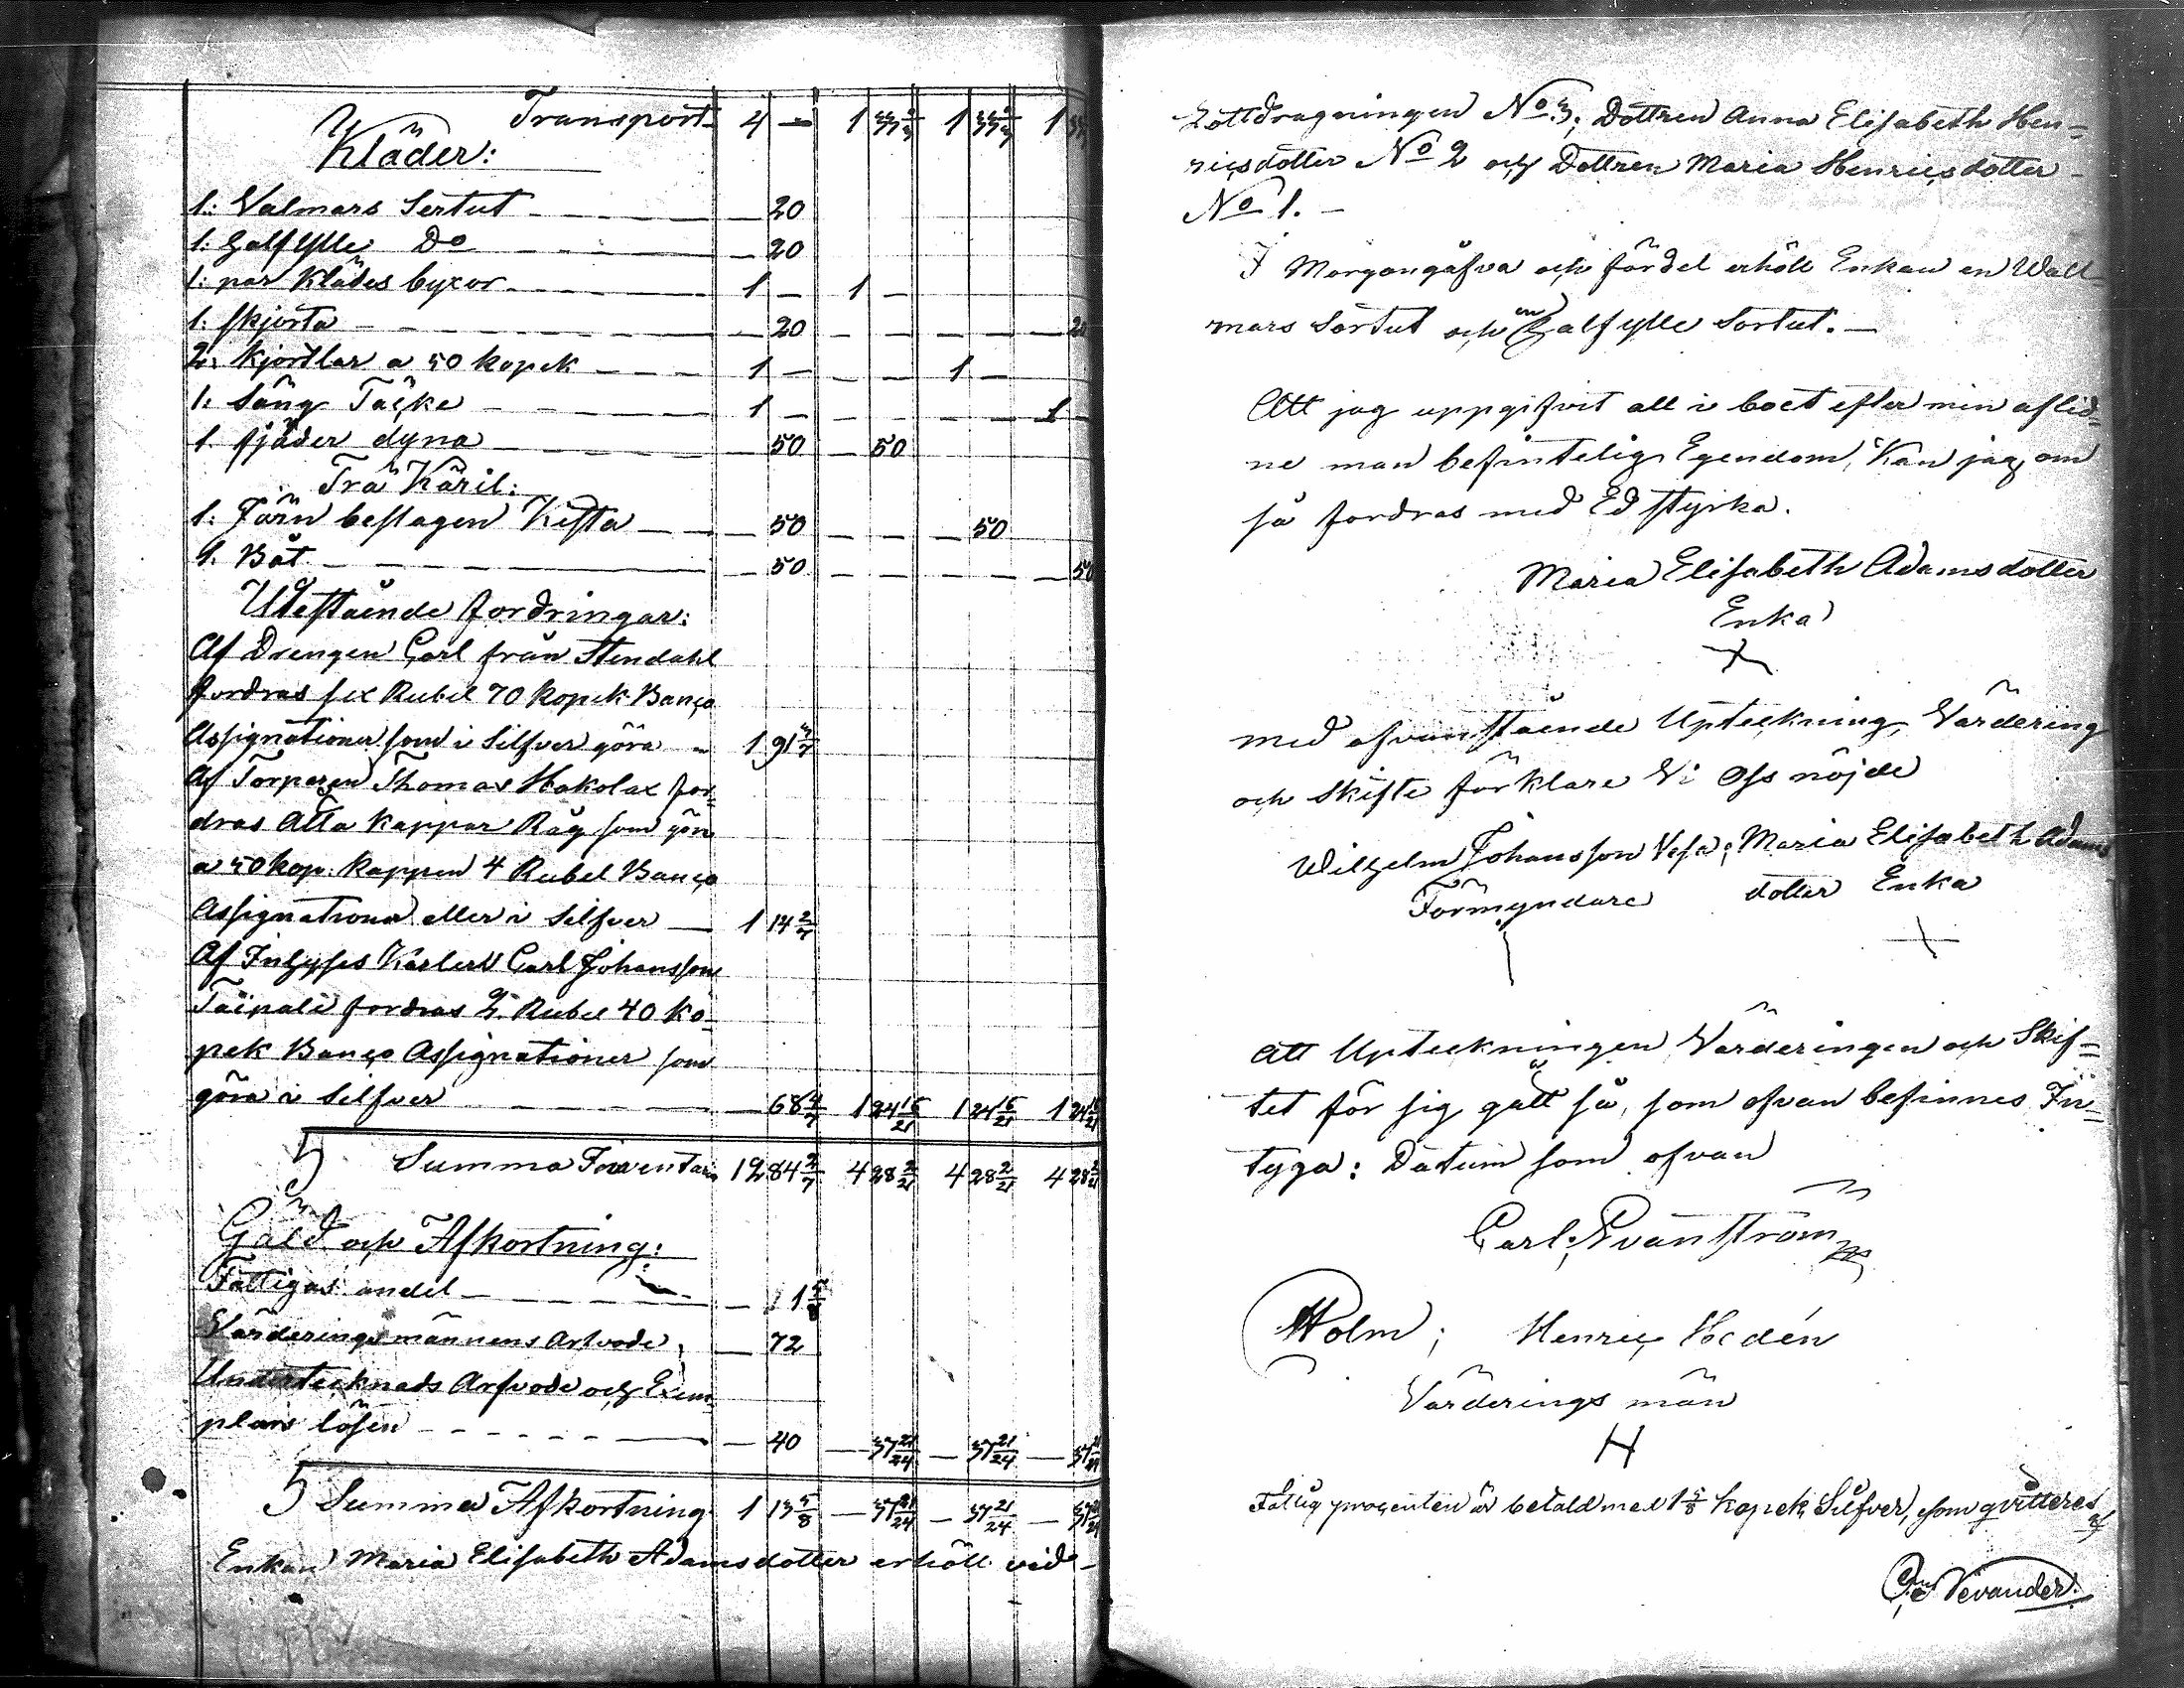 Transport 4 — 1 33 2/3 1 33 2/3 1 33
Kläder:
1: Valmars Sertut — 20
1: Halfylle Do — 20
1: par Klädes byxor 1 — 1 —
1: skjorta — 20 — — — — — 20
2: Kjortlar a 50 kopek 1 — — — 1 —
1: Säng Täcke 1 — — — — — 1
1. fjäder dyna 50 — 50
Trä Käril:
1: Järn beslagen Kista — 50 — — — 50
1. Båt — 50 — — — — — 50
Utestående fordringar:
Af Drengen Carl från Stendahl
fordras sex Rubel 70 kopek Banco
Assignationer som i Silfver göra 1 91 3/7
Af Torparen Thomas Hokolax for=
dras Åtta kappar Råg som göra
a 50 kop. kappen 4 Rubel Banco
Assignationer eller i Silfver 1 14 2/7
Af Inhyses Karlen Carl Johansson
Taipale fordras 2 Rubel 40 ko=
pek Banco Assignationer som
göra i Silfver — 68 4/7 1 24 16/21 1 24 16/21 1 24 16/21
Summa Inventarii 12 84 2/7 4 28 2/21 4 28 2/21 4 28 2/21
Gäld och Afkortning:
Fattigas andel — 1 5/8
Värderingsmännens Arfvode, — 72
Undertecknads Arfvode och Exem
plars lösen — 40 — 37 21/24 — 37 21/24 — 37 21/24
Summa Afkortning 1 13 5/8 — 37 21/24 — 37 21/24 — 37 21/24
Enkan Maria Elisabeth Adamsdotter erhöll vid
Lottdragningen No 3; Dottren Anna Elisabeth Hen=
ricsdotter No 2 och Dottren Maria Henricsdotter
No 1. —
I Morgongåfva och fördel erhöll Enkan en Wall
mars Sortut och en Halfylle Sortut. —
Att jag uppgifvit all i boet efter min aflid=
ne man befintelig Egendom, Kan jag om
så fordras med Ed styrka.
Maria Elisabeth Adamsdotter
Enka
Med ofvanstående Upteckning, Värdering
och Skifte förklare Vi Oss nöjde
Wilhelm Johansson Vesa; Maria Elisabeth Adams
Förmyndare dotter Enka
Att Upteckningen Värderingen och Skif=
tet för sig gått så, som ofvan befinnes In=
tyga: Datum som ofvan
Carl Qvanström
Holm; Henric Hedén
Värderings män
Fattig procenten är betald med 1 5/8 kopek Silfver, som qvitteras af
Vivander.